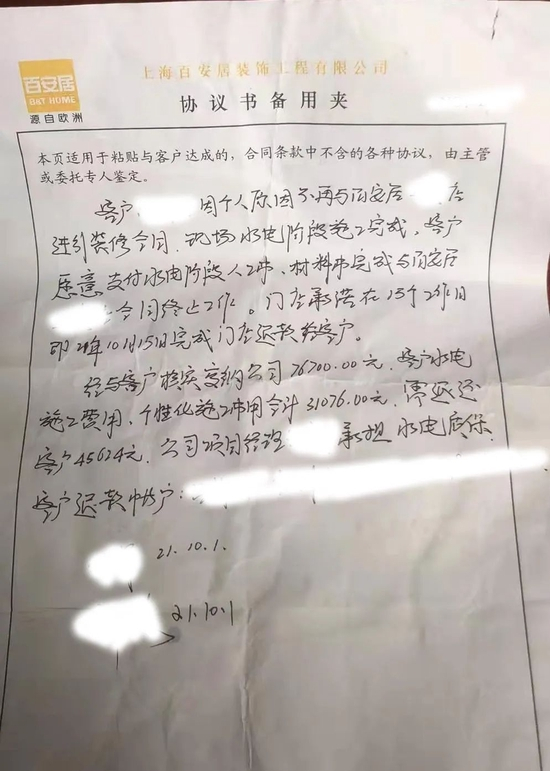 百安居
B&T HOME
源自欧洲
上海百安居装饰工程有限公司
协议书备用夹
本页适用于粘贴与客户达成的，合同条款中不含的各种协议，由主管
或委托专人鉴定。
客户 因个人原因不再与百安居 店
进行装修合同，现场水电阶段施工完成，客户
愿意支付水电阶段人工费、材料费完成与百安居
合同终止工作。门店承诺在15个工作日
即21年10月15日完成门店退款给客户。
经与客户核实交纳公司76700.00元，客户水电
施工费用、个性化施工费用合计31076.00元，需返还
客户45624元，公司项目经理 承担水电质保
客户退款帐户：
21.10.1.
21.10.1